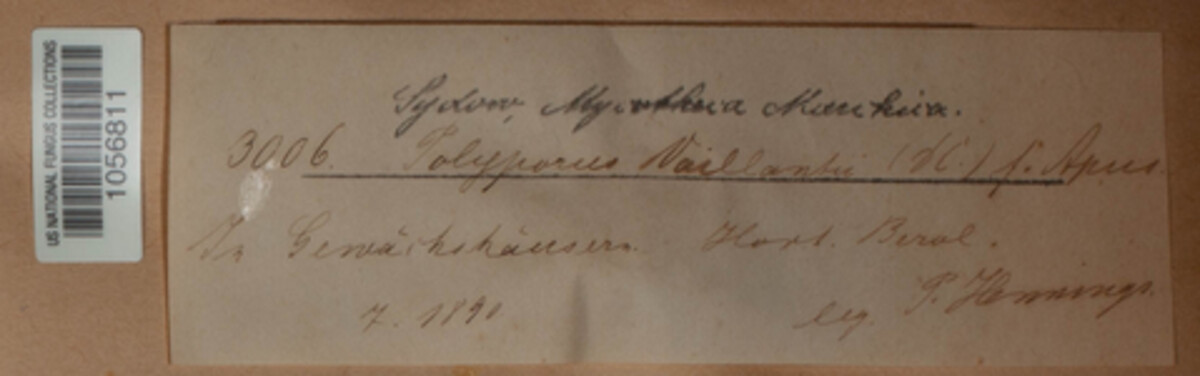 US NATIONAL FUNGUS COLLECTIONS
01056811
Sydow, Mycotheca Marchica.
3006. Polyporus Vaillantii (DC.) f.
In Gewächshäusern. Hort. Berol.
7. 1890
leg. P. Hennings.